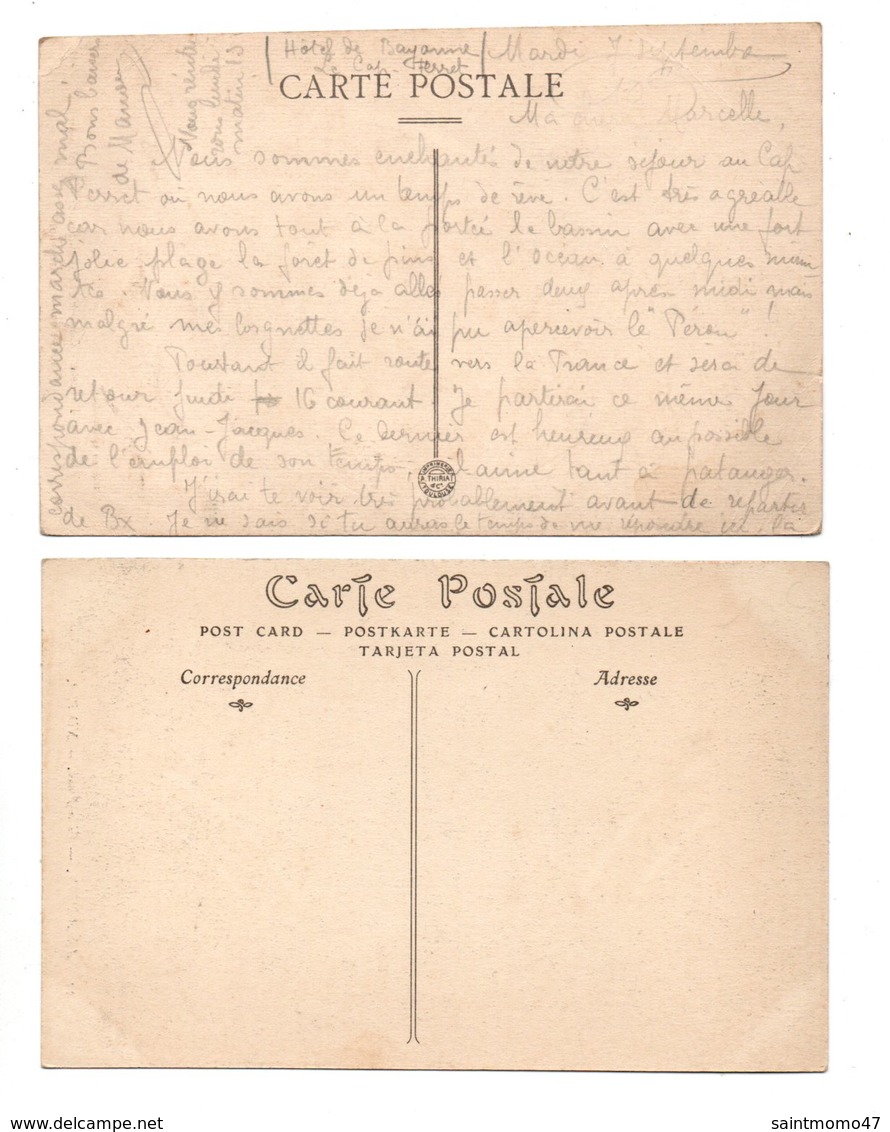 Hôtel de Bayonne
Le Cap-Ferret
Mardi 7 Septembre
CARTE POSTALE
Ma Marcelle,
Nous sommes enchantés de notre séjour au Cap
Ferret où nous avons un temps de rêve. C'est très agréable
car nous avons tout à la portée le bassin avec une fort
jolie plage la forêt de pins et l'océan à quelques
Nous y sommes déjà allés passer deux après midi mais
malgré mes lorgnettes je n'ai pu apercevoir le "Pérou"!
Pourtant il fait route vers la France et sera de
retour jeudi 16 courant. Je partirai ce même jour
avec Jean-Jacques. Ce dernier est heureux au possible
de l'emploi de son temps, il aime tant à patauger.
J'irai te voir très probablement avant de repartir
de Bx. Je ne sais si tu auras le temps de me répondre ici, la
correspondance marche assez mal.
Bons baisers
de
Nous
lundi
matin 13
IMPRIMERIE
A. THIRIAT
& Cie
TOULOUSE
Carte Postale
POST CARD — POSTKARTE — CARTOLINA POSTALE
TARJETA POSTAL
Correspondance
Adresse
www.delcampe.net
saintmomo47